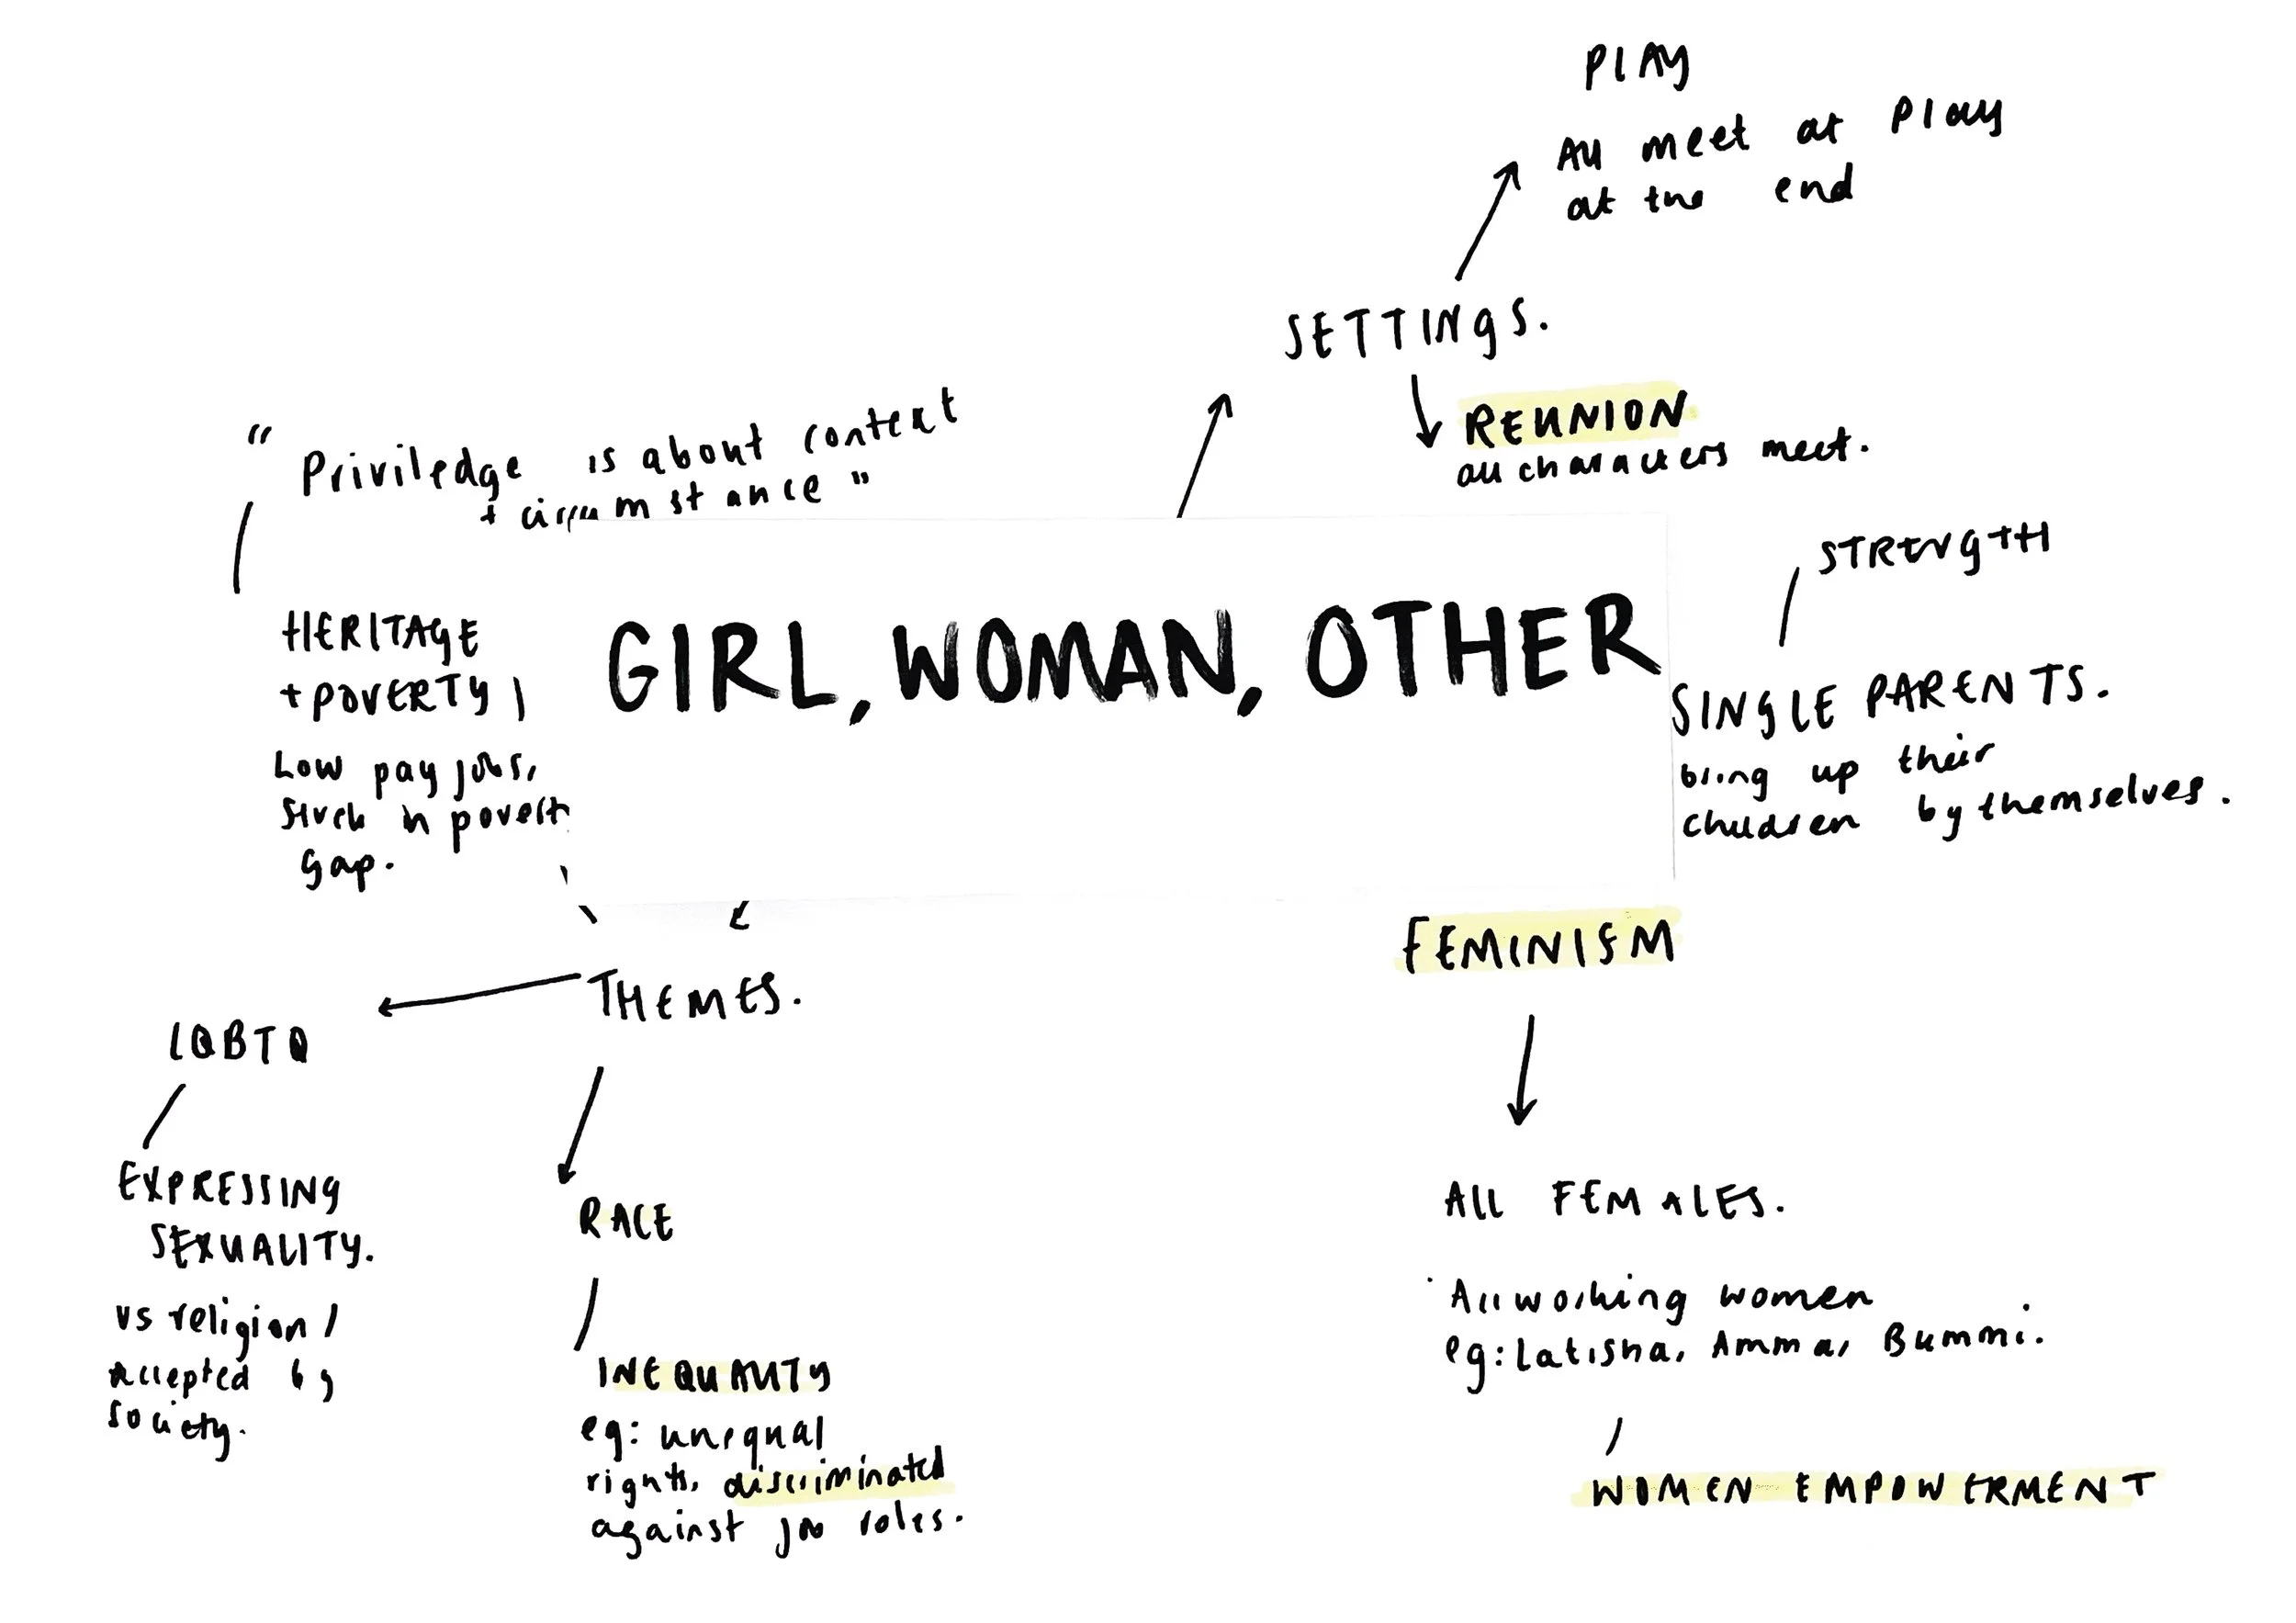 PLAY
All meet at Play
at the end
SETTINGS.
REUNION
all characters meet.
"Priviledge is about context
+ circumstance"
HERITAGE
+ POVERTY /
Low pay jobs,
stuck in povert
gap.
GIRL, WOMAN, OTHER
STRENGTH
SINGLE PARENTS.
bring up their
children by themselves.
THEMES.
LGBTQ
EXPRESSING
SEXUALITY.
vs religion /
accepted by
society.
RACE
INEQUALITY
eg: unequal
rights, discriminated
against job roles.
FEMINISM
ALL FEMALES.
All working women
eg: Latisha, Amma, Bummi.
WOMEN EMPOWERMENT